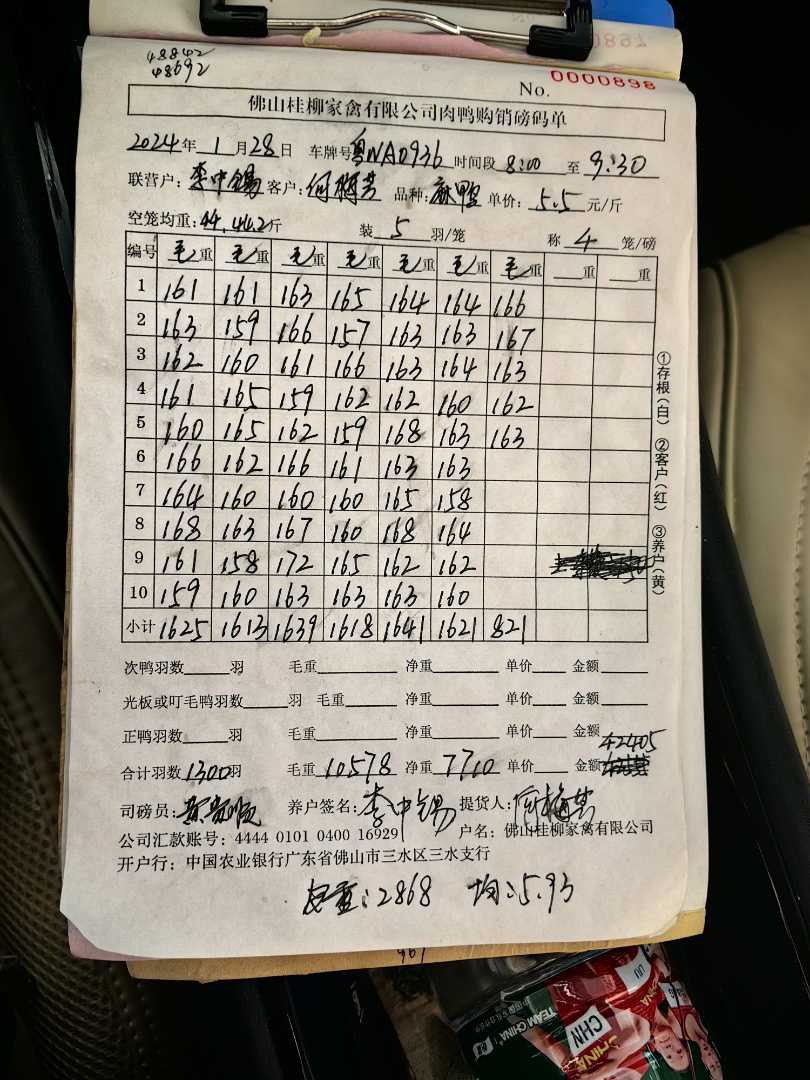 48842
48692
No. 0000898
佛山桂柳家禽有限公司肉鸭购销磅码单
2024年 1 月 28 日 车牌号 粤NA0936 时间段 8:00 至 9:30
联营户: 李中锡 客户: 何梅芳 品种: 麻鸭 单价: 5.5 元/斤
空笼均重: 44.442斤 装 5 羽/笼 称 4 笼/磅
编号 毛重 毛重 毛重 毛重 毛重 毛重 毛重 重 重
1 161 161 163 165 164 164 166
2 163 159 166 157 163 163 167
3 162 160 161 166 163 164 163
4 161 165 159 162 162 160 162
5 160 165 162 159 168 163 163
6 166 162 166 161 163 163
7 164 160 160 160 165 158
8 168 163 167 160 168 164
9 161 158 172 165 162 162
10 159 160 163 163 163 160
小计 1625 1613 1639 1618 1641 1621 821
①存根(白) ②客户(红) ③养户(黄)
次鸭羽数 羽 毛重 净重 单价 金额
光板或叮毛鸭羽数 羽 毛重 净重 单价 金额
正鸭羽数 羽 毛重 净重 单价 金额
合计羽数 1300羽 毛重 10578 净重 7710 单价 金额 42405
司磅员: 养户签名: 李中锡 提货人: 何梅芳
公司汇款账号: 4444 0101 0400 16929 户名: 佛山桂柳家禽有限公司
开户行: 中国农业银行广东省佛山市三水区三水支行
皮重: 2868 均: 5.93
TEAM CHINA
CHN
CHINA
LIU